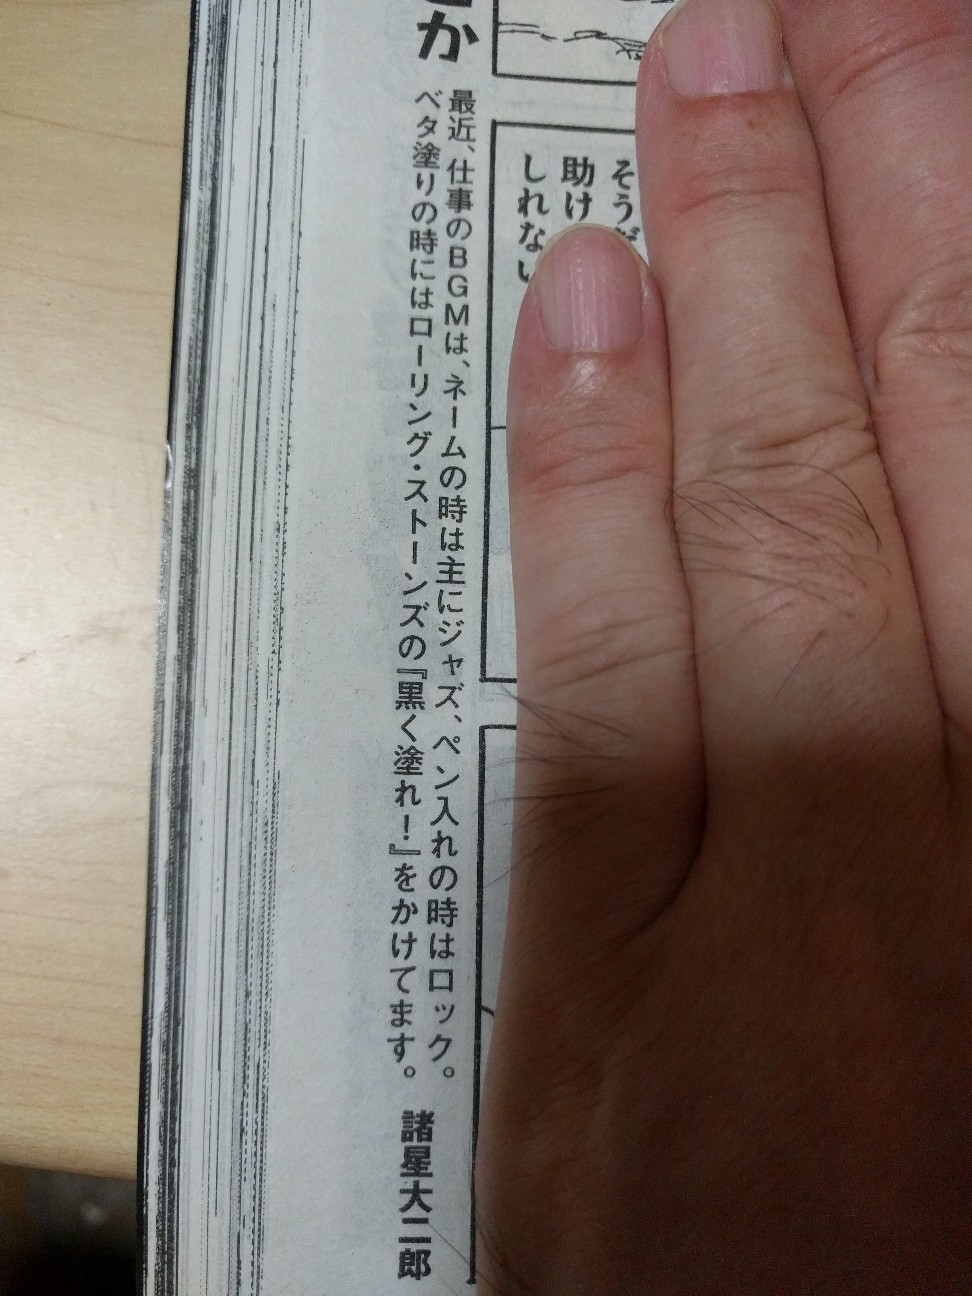 か
そう
助け
しれない
最近、仕事のBGMは、ネームの時は主にジャズ、ペン入れの時はロック。
ベタ塗りの時にはローリング・ストーンズの『黒く塗れ!』をかけてます。
諸星大二郎